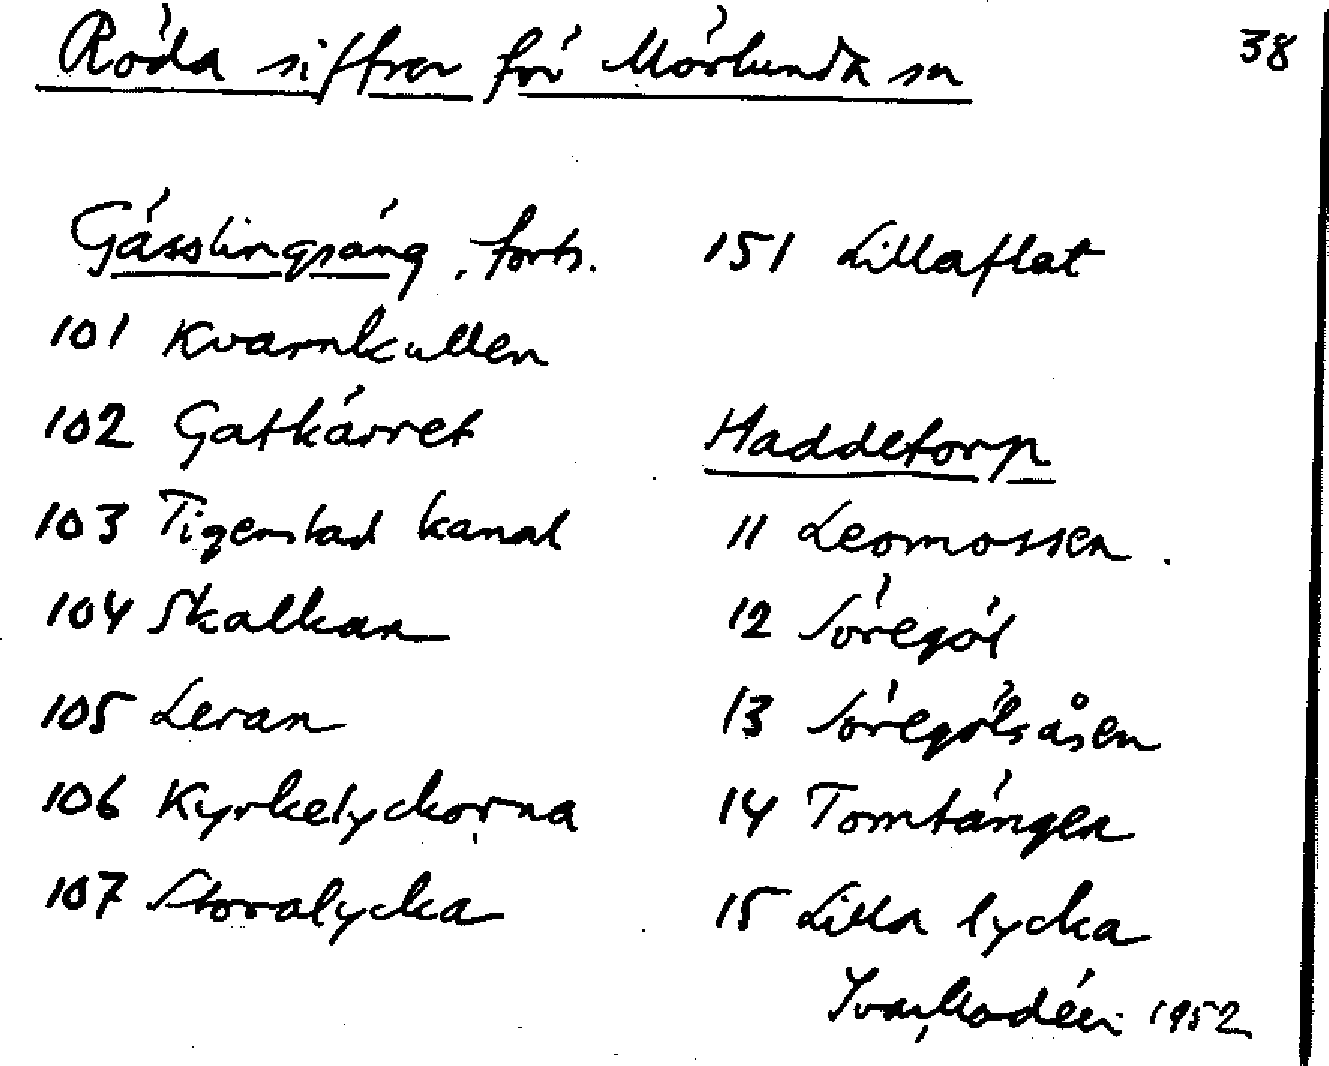 Röda siffror för Mörlunda sn
38
Gässlingsäng, forts.
101 Kvarnkullen
102 Gatkärret
103 Tigerstad kanal
104 Skalkan
105 Leran
106 Kyrkelyckorna
107 Storalycka
151 Lillaflat
Haddetorp
11 Leomossen.
12 Söregöl
13 Söregölsåsen
14 Tomtängen
15 Lilla lycka
Ivar Modéer 1952